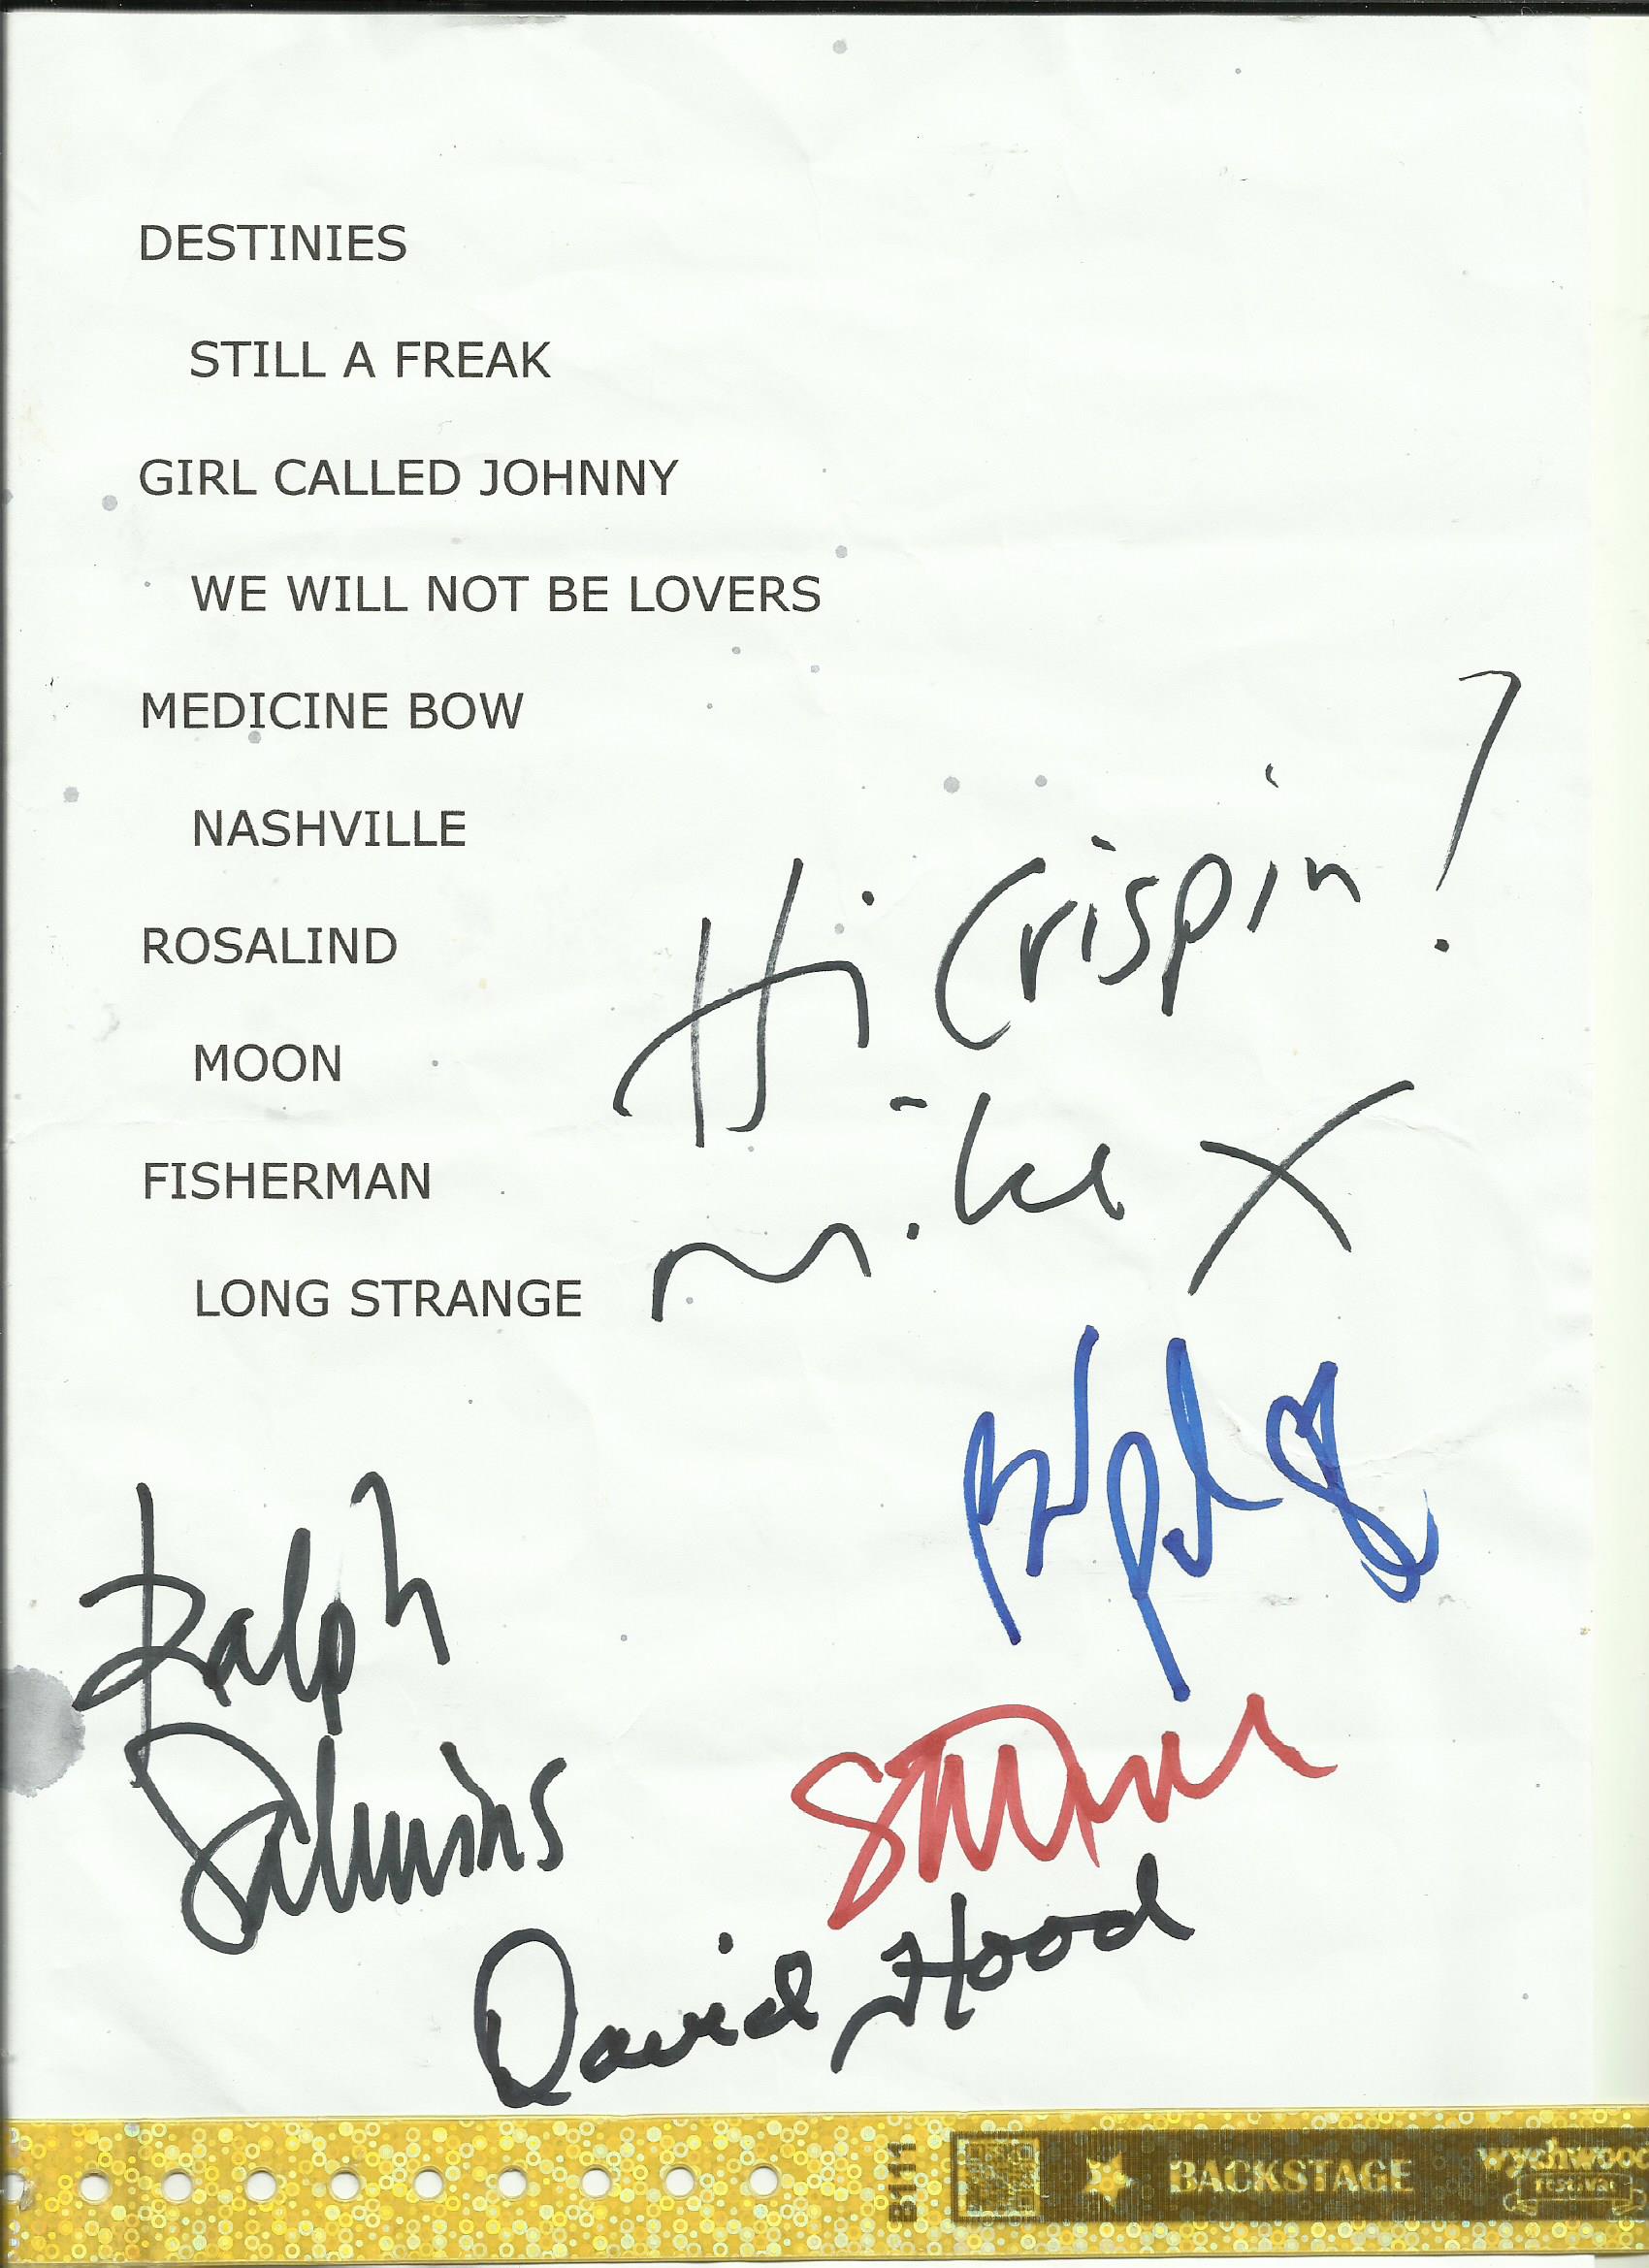 DESTINIES
STILL A FREAK
GIRL CALLED JOHNNY
WE WILL NOT BE LOVERS
MEDICINE BOW
NASHVILLE
ROSALIND
MOON
FISHERMAN
LONG STRANGE
Hi Crispin!
Mike X
Ralph
Salmins
David Hood
B1111
BACKSTAGE
wychwood
FESTIVAL